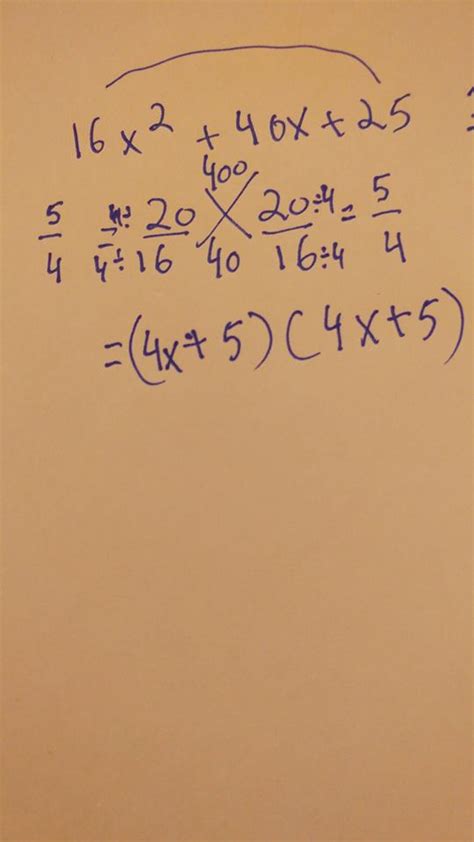 16x² + 40x + 25
400
5/4 = 4÷ 20/16 40 20÷4/16÷4 = 5/4
=(4x+5)(4x+5)